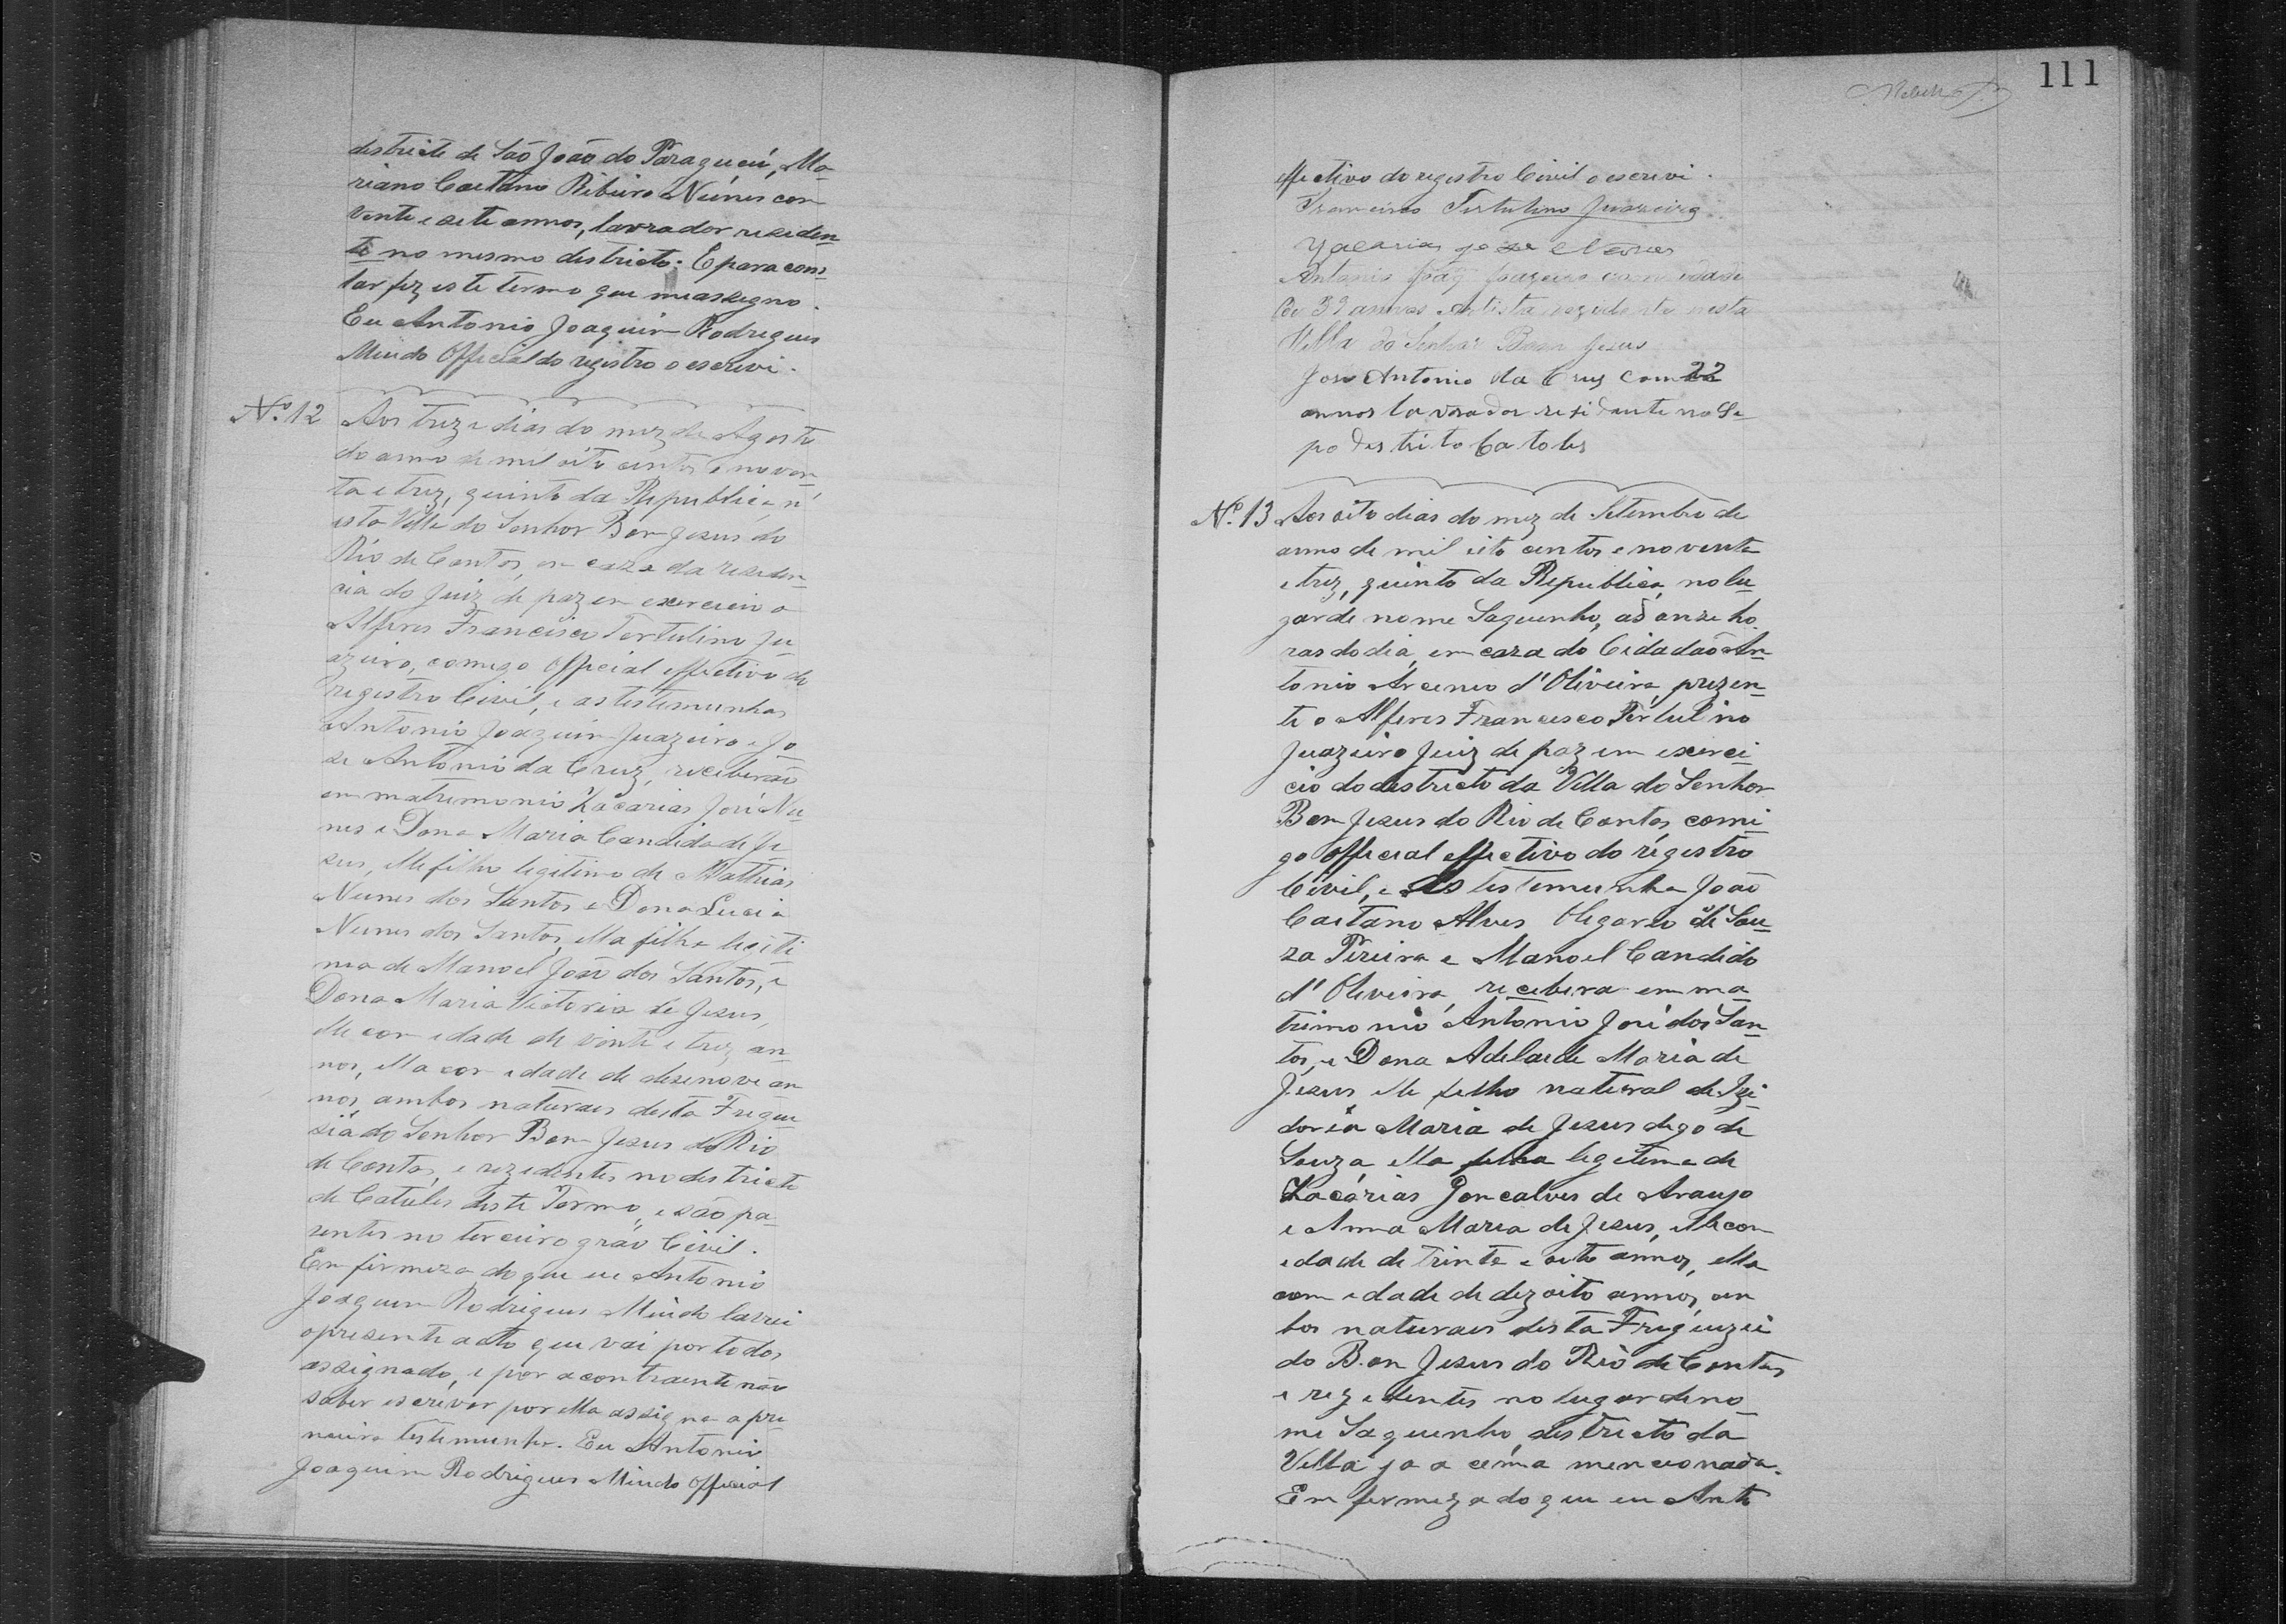 districto de São João do Paraguçú, Ma-
riano Caetano Ribeiro Nunes com
vente e sete annos, lavrador residen
te no mesmo districto. E para cons
tar fiz este termo que me assegno.
Eu Antonio Joaquim Rodrigues
Mindo Official do registro o escrevi.
Nº. 12 Aos treze dias do mez de Agosto
do anno de mil oito centos e noven
ta e trez, quinto da Republica, n'
esta Villa do Senhor Bom Jesus do
Rio de Contas, em caza da residen
cia do Juiz de paz em exercicio o
Alferes Francisco Tertulino Ju
azeiro, comigo Official effectivo do
registro Civil, e as testemunhas
Antonio Joaquim Juazeiro e Jo
se Antonio da Cruz, receberão
em matrimonio Zacarias José Nu
nes e Dona Maria Candida de Je
sus, elle filho legitimo de Mathias
Nunes dos Santos e Dona Lucia
Nunes dos Santos, ella filha legiti
ma de Manoel João dos Santos, e
Dona Maria Victoria de Jesus,
elle com idade de vinte e trez an
nos, ella com idade de desenove an
nos, ambos naturaes desta Fregue
sia do Senhor Bom Jesus do Rio
de Contas, e rezedentes no destricto
de Catules deste Termo, e são pa
rentes no terceiro gráo Civil.
Em firmeza do que eu Antonio
Joaquim Rodrigues Mindo lavrei
o presente acto que vai por todos
assignado, e por a contraente não
saber escrever por ella assigna a pri
meira testemunha. Eu Antonio
Joaquim Rodrigues Mindo Official
111
effectivo do registro Civil o escrevi.
Francisco Tertulino Juazeiro
Zacarias jose Nunes
Antonio Joaq Juazeiro com idade
de 39 annos Artista rezidente nesta
Villa do Senhor Bom Jesus
Jose Antonio da Cruz com 22
annos lavrador residente no Ca
po destrito Catoles
Nº. 13 Aos oito dias do mez de Setembro de
anno de mil oito centos e noventa
e trez, quinto da Republica, no lu
gar de nome Saquenho, as onze ho
ras do dia, em caza do Cidadão An
tonio Arceneo d'Oliveira, prezen
te o Alferes Francisco Tertulino
Juazeiro Juiz de paz em exerci
cio do destricto da Villa do Senhor
Bom Jesus do Rio de Contas, comi
go Official effectivo do registro
Civil, e as testemunha João
Caetano Alves Olegario de Sou
za Pereira e Manoel Candido
d'Oliveira, recebera em ma
trimonio Antonio José dos San
tos, e Dona Adelaide Maria de
Jesus, elle filho natural de Izi
doria Maria de Jesus digo de
Souza, ella filha legetima de
Zacarias Goncalves de Araujo
e Anna Maria de Jesus, elle com
edade de trinta e oito annos, ella
com edade de dezoito annos, am
bos naturaes desta Freguezia
do Bom Jesus do Rio de Contas
e rezedentes no lugar de no
me Saquenho, destricto da
Villa ja a cima mencionada.
Em fermeza do que eu Anto